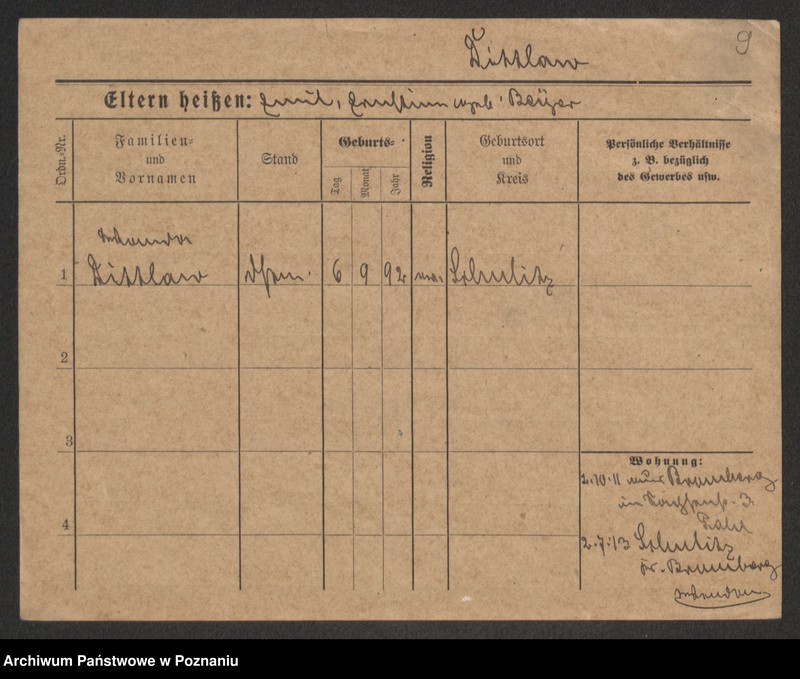 9
Dittlaw
Eltern heißen: Emil, Ernstine geb. Beÿer
Ordn.-Nr.
Familien- und Vornamen
Stand
Geburts-
Tag
Monat
Jahr
Religion
Geburtsort und Kreis
Persönliche Verhältnisse z. B. bezüglich des Gewerbes usw.
1 Dittlaw 6 9 92 Schulitz
2
3
4
Wohnung:
2.10.11 Bromberg
3
2.7.13 Schulitz
Kr. Bromberg
Archiwum Państwowe w Poznaniu